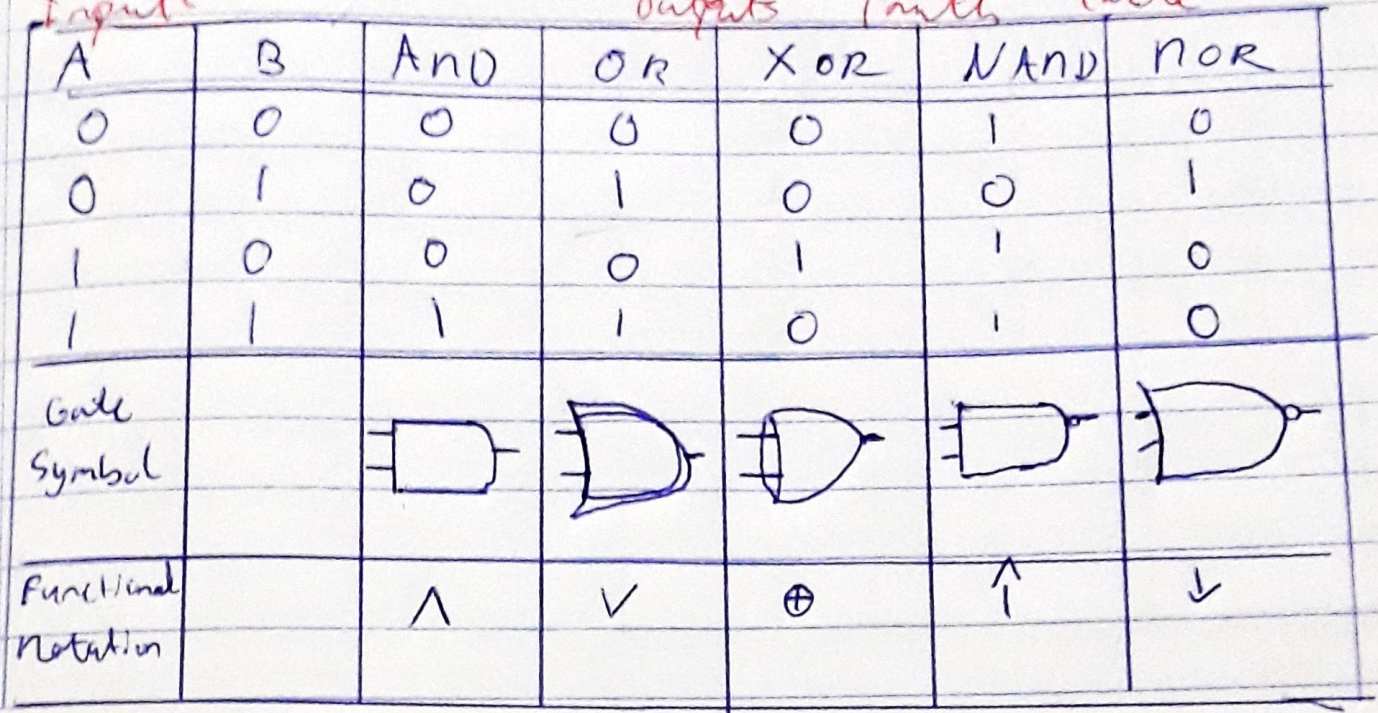 Input Outputs Truth Table
A B AND OR XOR NAND NOR
0 0 0 0 0 1 0
0 1 0 1 0 0 1
1 0 0 0 1 1 0
1 1 1 1 0 1 0
Gate
Symbol
Functional
Notation
∧ ∨ ⊕ ↑ ↓